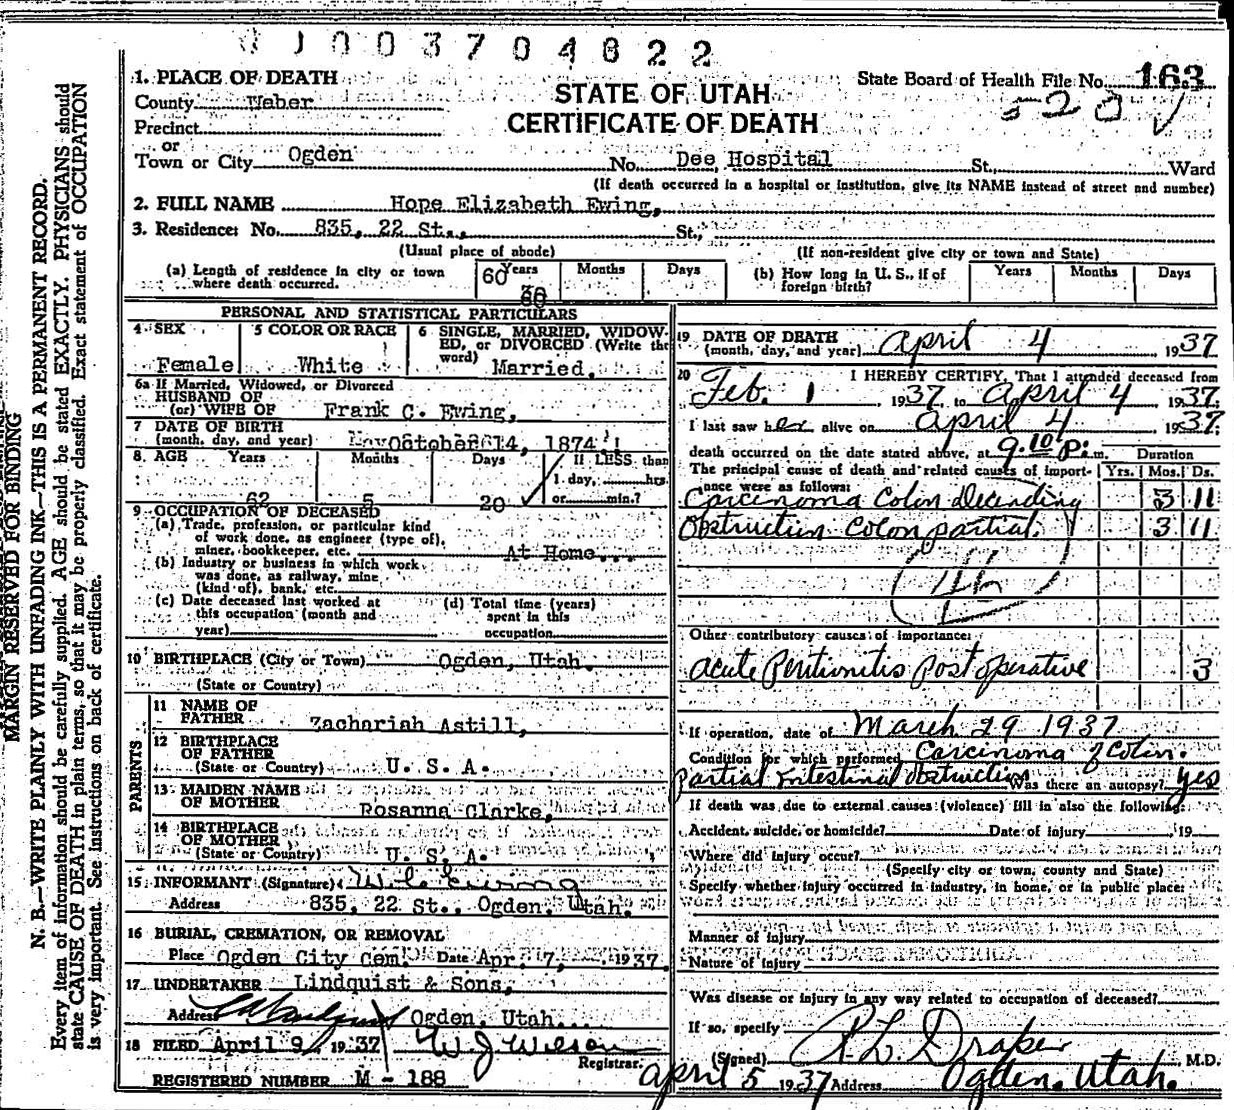 003704822
1. PLACE OF DEATH
STATE OF UTAH
CERTIFICATE OF DEATH
State Board of Health File No. 163
County Weber
Precinct
or
Town or City Ogden No. Dee Hospital St., Ward
(If death occurred in a hospital or institution, give its NAME instead of street and number)
2. FULL NAME Hope Elizabeth Ewing,
3. Residence: No. 835, 22 St., St.,
(Usual place of abode) (If non-resident give city or town and State)
(a) Length of residence in city or town where death occurred. 60 Years Months Days
(b) How long in U. S., if of foreign birth? Years Months Days
PERSONAL AND STATISTICAL PARTICULARS
4 SEX Female
5 COLOR OR RACE White
6 SINGLE, MARRIED, WIDOWED, or DIVORCED (Write the word) Married.
6a If Married, Widowed, or Divorced
HUSBAND OF
(or) WIFE OF Frank C. Ewing,
7 DATE OF BIRTH
(month, day, and year) October 14, 1874
8. AGE Years Months Days If LESS than
1 day, hrs.
62 5 20 or min.?
9 OCCUPATION OF DECEASED
(a) Trade, profession, or particular kind
of work done, as engineer (type of),
miner, bookkeeper, etc. At Home...
(b) Industry or business in which work
was done, as railway, mine
(kind of), bank, etc.
(c) Date deceased last worked at this occupation (month and year)
(d) Total time (years) spent in this occupation
10 BIRTHPLACE (City or Town) Ogden, Utah.
(State or Country)
PARENTS
11 NAME OF
FATHER Zachariah Astill,
12 BIRTHPLACE
OF FATHER
(State or Country) U. S. A.
13 MAIDEN NAME
OF MOTHER Rosanna Clarke,
14 BIRTHPLACE
OF MOTHER
(State or Country) U. S. A.
15 INFORMANT (Signature)
Address 835, 22 St., Ogden, Utah.
16 BURIAL, CREMATION, OR REMOVAL
Place Ogden City Cem. Date Apr. 7, 1937.
17 UNDERTAKER Lindquist & Sons,
Address Ogden, Utah...
18 FILED April 9, 1937 W. J. Wilson
Registrar.
REGISTERED NUMBER M - 188
19 DATE OF DEATH
(month, day, and year) April 4 1937
20 I HEREBY CERTIFY, That I attended deceased from
Feb. 1, 1937, to April 4 1937;
I last saw her alive on April 4 1937;
death occurred on the date stated above, at 9:10 P. m. Duration
The principal cause of death and related causes of importance were as follows: Yrs. Mos. Ds.
Carcinoma Colin Decending 3 11
Obstruction Colon partial. 3 11
Other contributory causes of importance:
Acute Peritionitis Postoperative 3
If operation, date of March 29 1937
Condition for which performed Carcinoma of Colin.
Partial Intestinal Obstruction Was there an autopsy? yes
If death was due to external causes (violence) fill in also the following:
Accident, suicide, or homicide? Date of injury 19
Where did injury occur?
(Specify city or town, county and State)
Specify whether injury occurred in industry, in home, or in public place:
Manner of injury
Nature of injury
Was disease or injury in any way related to occupation of deceased?
If so, specify
(Signed) R. L. Draper M.D.
April 5 1937 Address Ogden, Utah.
MARGIN RESERVED FOR BINDING
N. B.—WRITE PLAINLY WITH UNFADING INK—THIS IS A PERMANENT RECORD.
Every item of information should be carefully supplied. AGE should be stated EXACTLY. PHYSICIANS should
state CAUSE OF DEATH in plain terms, so that it may be properly classified. Exact statement of OCCUPATION
is very important. See instructions on back of certificate.